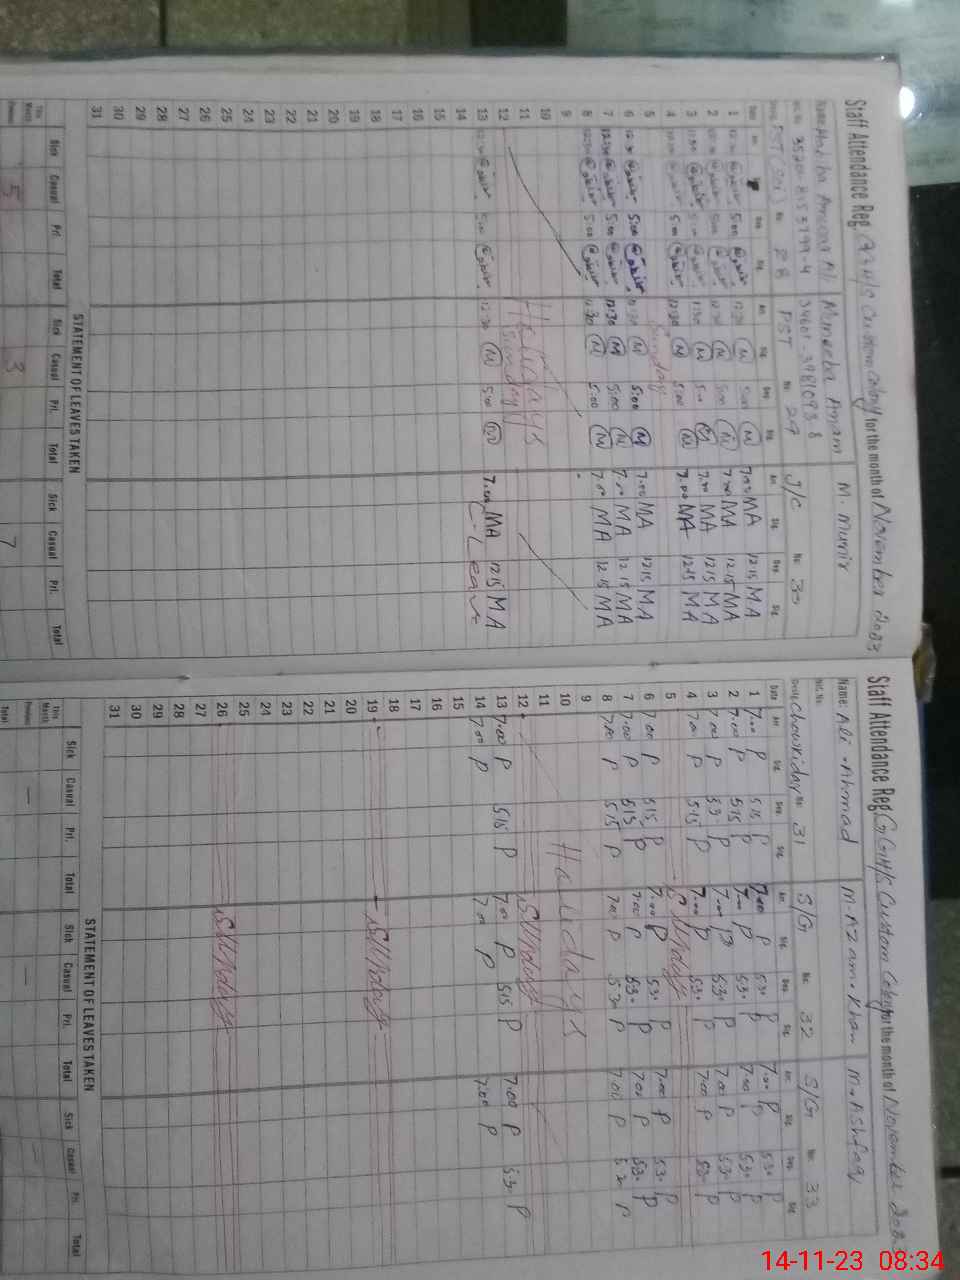 Staff Attendance Reg. G.G.H/S Custom Colony for the month of November 2023
Name: Haniba Amjad Ali Momeeba Anam M. Munir
PST No. 28 PST No. 29 J/C No. 30
Date Arr. Sig. Dep. Sig. Arr. Sig. Dep. Sig. Arr. Sig. Dep. Sig.
1 12:30 5:00 12:30 M 5:00 M 7:00 MA 12:15 MA
2 12:30 5:00 12:30 M 5:00 M 7:00 MA 12:15 MA
3 12:30 5:00 12:30 M 5:00 M 7:00 MA 12:15 MA
4 12:30 5:00 12:30 M 5:00 M 7:00 MA 12:15 MA
5 Sunday
6 12:30 5:00 12:30 M 5:00 M 7:00 MA 12:15 MA
7 12:30 5:00 12:30 M 5:00 M 7:00 MA 12:15 MA
8 12:30 5:00 12:30 M 5:00 M 7:00 MA 12:15 MA
9
10
11 Holidays
12 Sunday
13 12:30 5:00 12:30 M 5:00 M 7:00 MA 12:15 MA
14 C-Leave
15
16
17
18
19
20
21
22
23
24
25
26
27
28
29
30
31
STATEMENT OF LEAVES TAKEN
Sick Casual Pri. Total Sick Casual Pri. Total Sick Casual Pri. Total
This Month
Previous 5 3 7
Staff Attendance Reg. G.G.H/S Custom Colony for the month of November 2023
Name: Ali Ahmad M. Azam Khan M. Ashfaq
NIC. No.
Desig: Chowkidar No. 31 S/G No. 32 S/G No. 33
Date Arr. Sig. Dep. Sig. Arr. Sig. Dep. Sig. Arr. Sig. Dep. Sig.
1 7:00 P 5:15 P 7:00 P 5:30 P 7:00 P 5:30 P
2 7:00 P 5:15 P 7:00 P 5:30 P 7:00 P 5:30 P
3 7:00 P 5:30 P 7:00 P 5:30 P 7:00 P 5:30 P
4 7:00 P 5:15 P 7:00 P 5:30 P 7:00 P 5:30 P
5 Sunday
6 7:00 P 5:15 P 7:00 P 5:30 P 7:00 P 5:30 P
7 7:00 P 5:15 P 7:00 P 5:30 P 7:00 P 5:30 P
8 7:00 P 5:15 P 7:00 P 5:30 P 7:00 P 5:20 P
9
10 Holidays
11
12 Sunday
13 7:00 P 5:15 P 7:00 P 5:15 P 7:00 P 5:30 P
14 7:00 P 7:00 P 7:00 P
15
16
17
18
19 Sunday
20
21
22
23
24
25
26 Sunday
27
28
29
30
31
STATEMENT OF LEAVES TAKEN
Sick Casual Pri. Total Sick Casual Pri. Total Sick Casual Pri. Total
This Month
Previous
Total
14-11-23 08:34